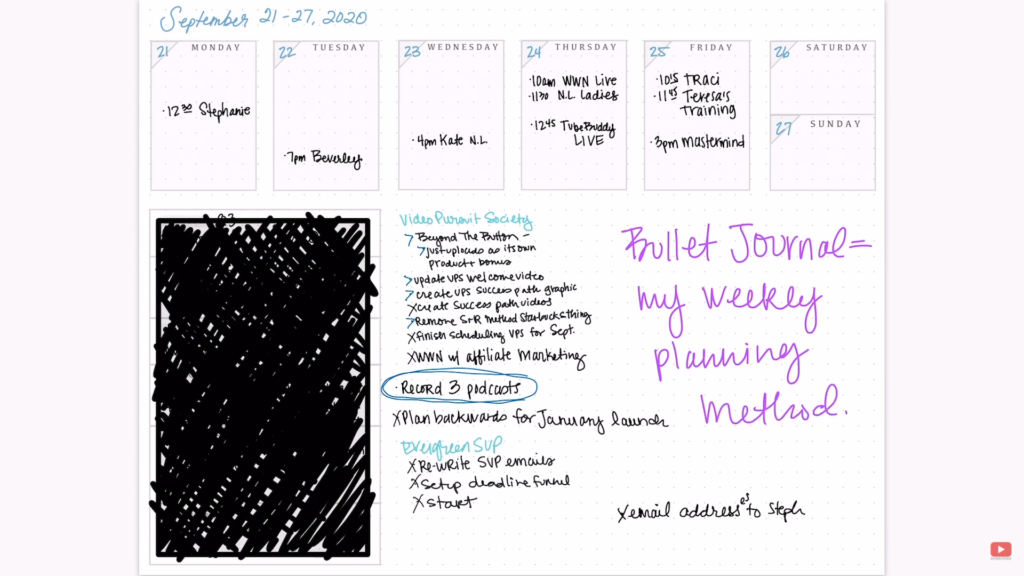 September 21-27, 2020
21 MONDAY
·12³⁰ Stephanie
22 TUESDAY
·7pm Beverley
23 WEDNESDAY
·4pm Kate N.L.
24 THURSDAY
·10am WWN Live
·11³⁰ N.L. Ladies
·12⁴⁵ TubeBuddy
LIVE
25 FRIDAY
·10¹⁵ Traci
·11⁴⁵ Teresa's
Training
·3pm Mastermind
26 SATURDAY
27 SUNDAY
Video Pursuit Society
> Beyond The Button -
> just uploads as its own
product + bonus
> update VPS welcome video
> create VPS success path graphic
X create success path videos
> Remove S+R method Starbucks thing
X finish scheduling VPS for Sept.
X WWN w/ affiliate Marketing
· Record 3 podcasts
X Plan backwards for January launch
Evergreen SVP
X Re-write SVP emails
X Setup deadline funnel
X start
Bullet Journal =
my weekly
planning
method.
X email addresses to Steph